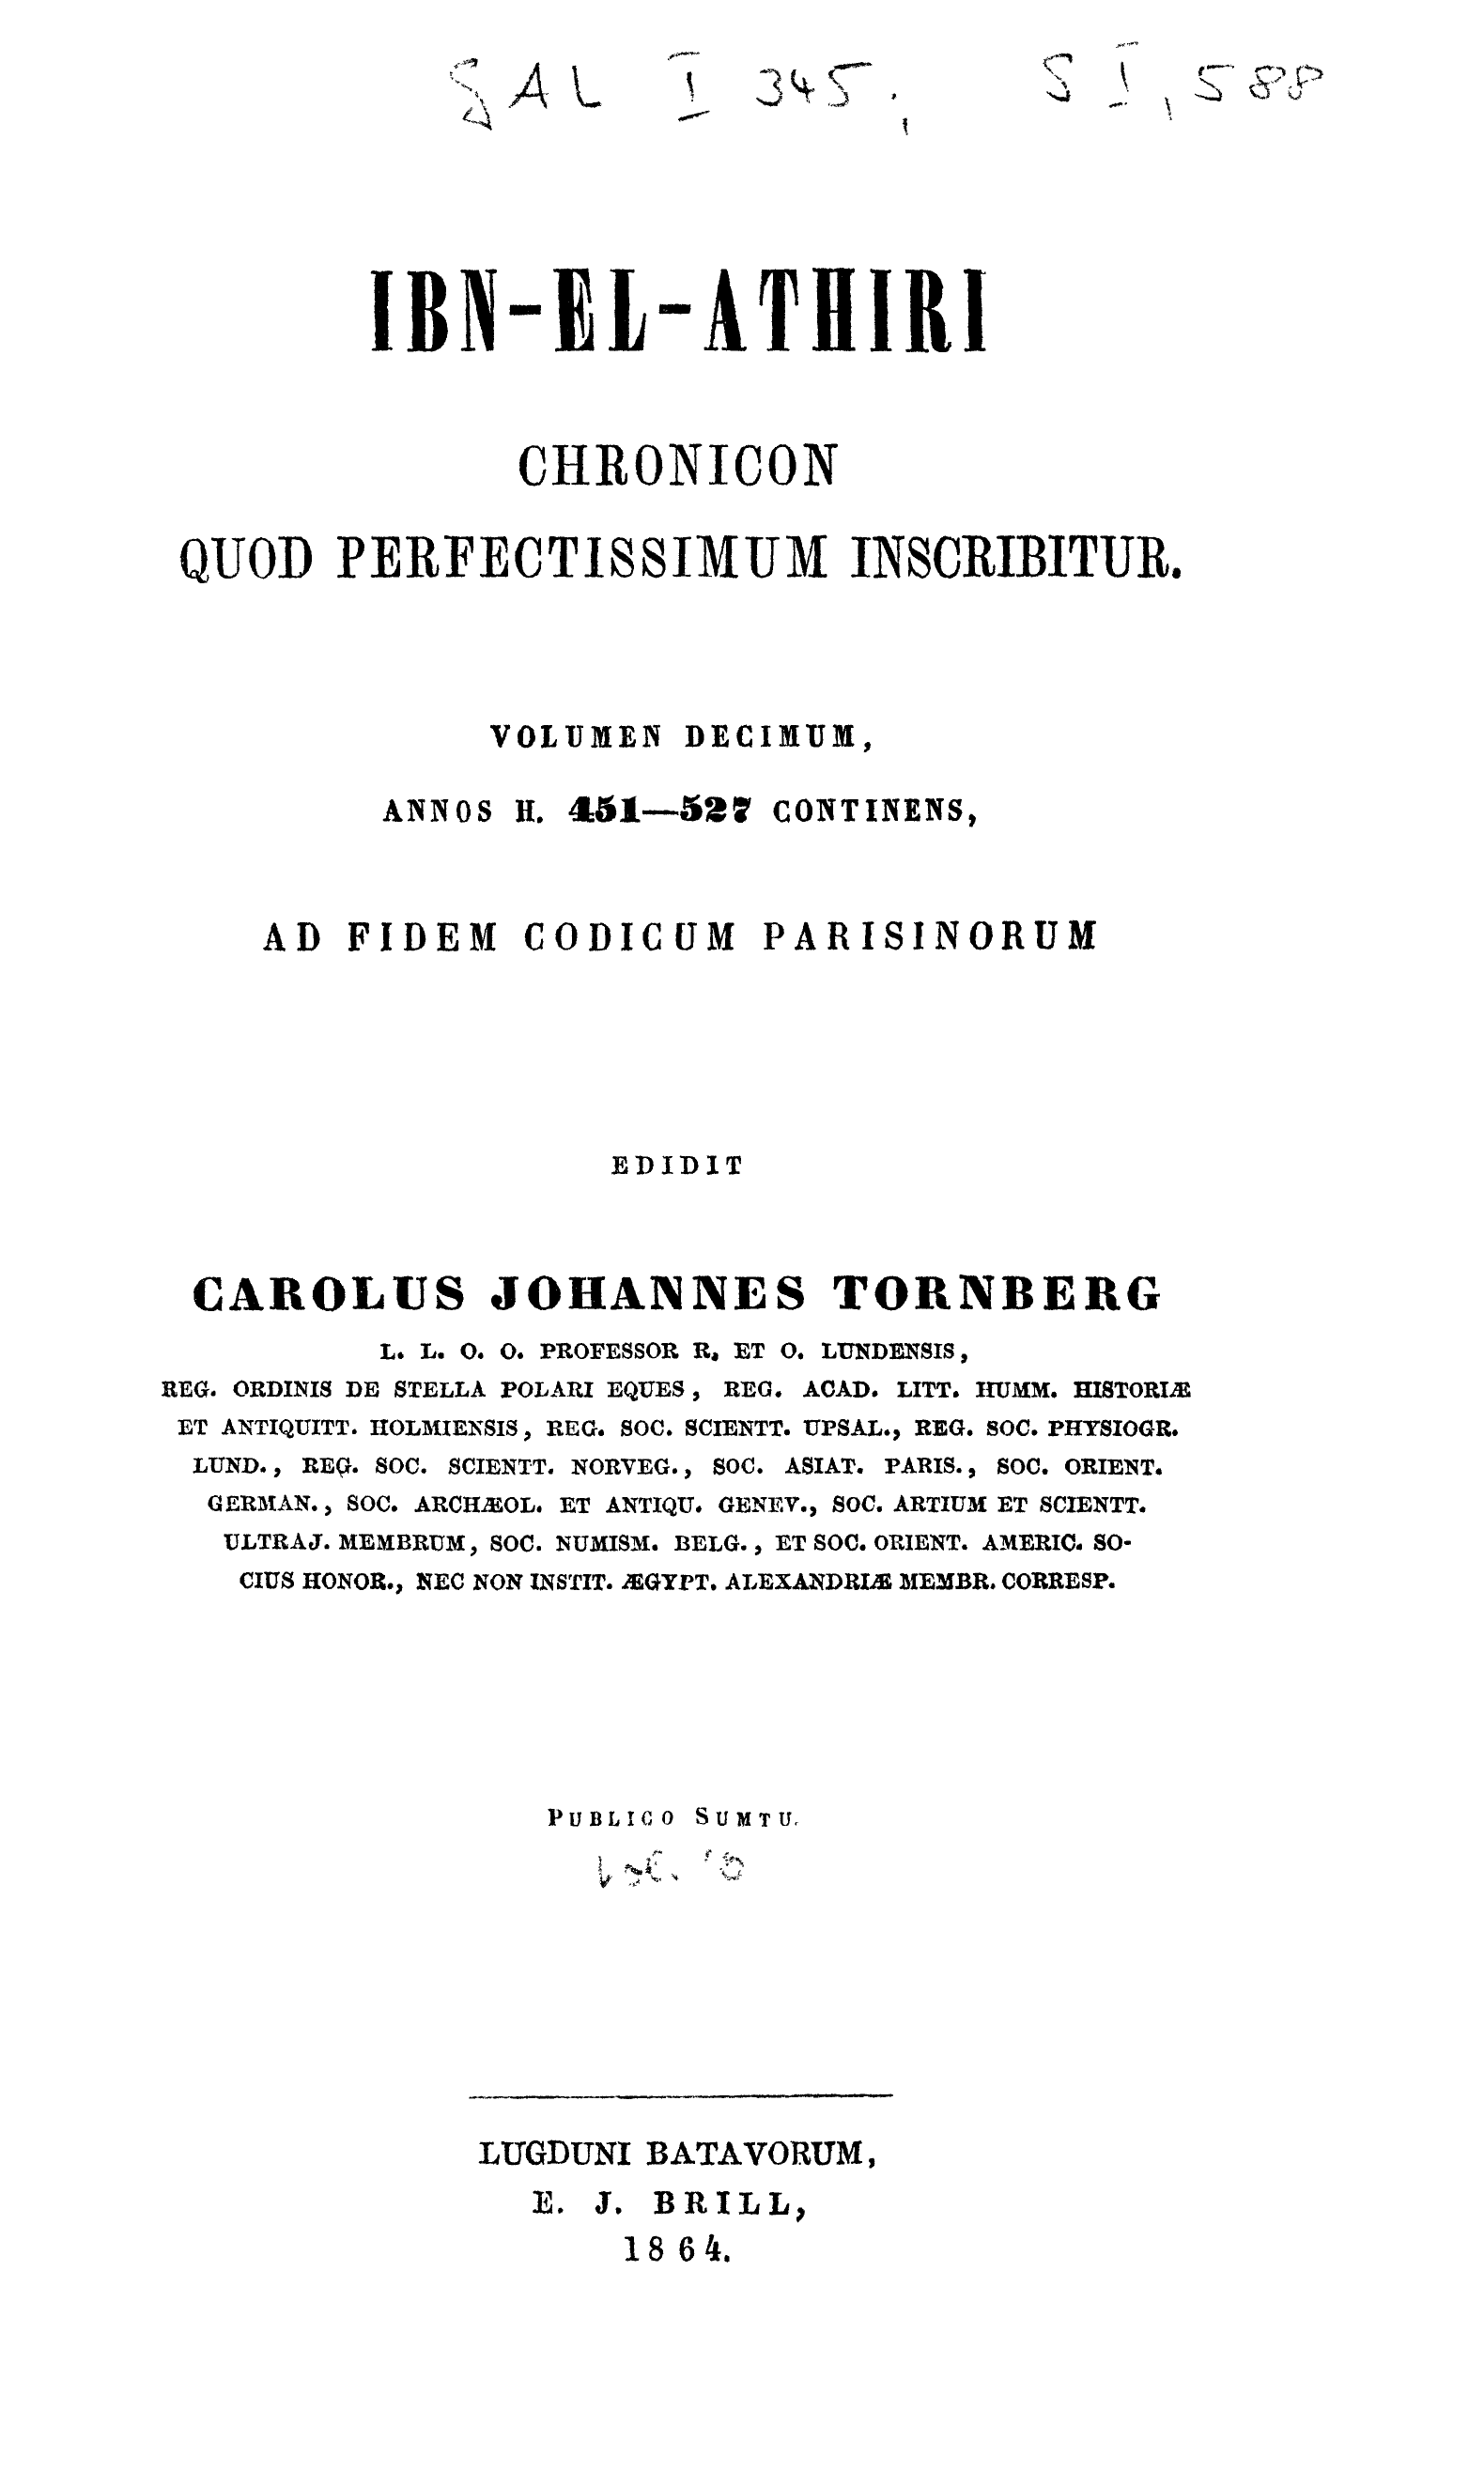 GAL I 345; S I, 588
IBN-EL-ATHIRI
CHRONICON
QUOD PERFECTISSIMUM INSCRIBITUR.
VOLUMEN DECIMUM,
ANNOS H. 451—527 CONTINENS,
AD FIDEM CODICUM PARISINORUM
EDIDIT
CAROLUS JOHANNES TORNBERG
L. L. O. O. PROFESSOR R. ET O. LUNDENSIS,
REG. ORDINIS DE STELLA POLARI EQUES, REG. ACAD. LITT. HUMM. HISTORIÆ
ET ANTIQUITT. HOLMIENSIS, REG. SOC. SCIENTT. UPSAL., REG. SOC. PHYSIOGR.
LUND., REG. SOC. SCIENTT. NORVEG., SOC. ASIAT. PARIS., SOC. ORIENT.
GERMAN., SOC. ARCHÆOL. ET ANTIQU. GENEV., SOC. ARTIUM ET SCIENTT.
ULTRAJ. MEMBRUM, SOC. NUMISM. BELG., ET SOC. ORIENT. AMERIC. SO-
CIUS HONOR., NEC NON INSTIT. ÆGYPT. ALEXANDRIÆ MEMBR. CORRESP.
PUBLICO SUMTU.
LUGDUNI BATAVORUM,
E. J. BRILL,
1864.